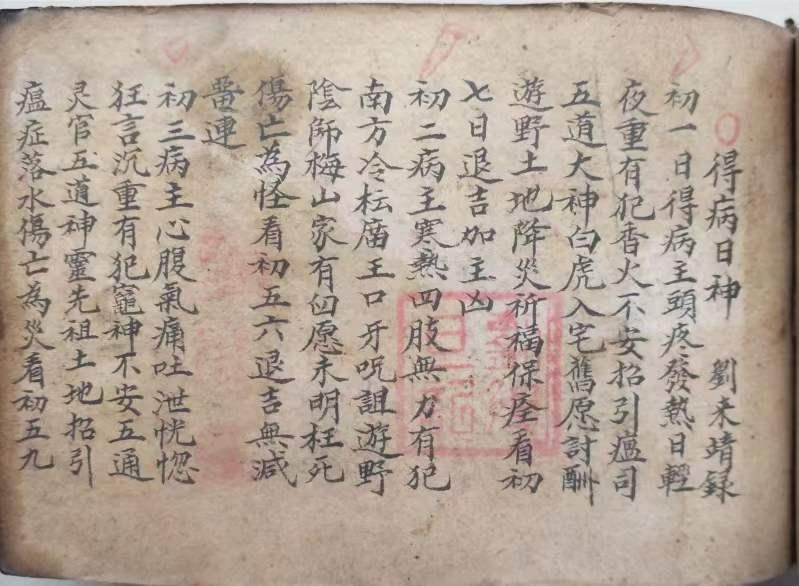 得病日神 劉来靖録
初一日得病主頭疼發熱日輕
夜重有犯香火不安招引瘟司
五道大神白虎入宅舊愿討酬
遊野土地降災祈福保痊看初
七日退吉加主凶
初二病主寒熱四肢無力有犯
南方冷枟庙王口牙呪詛遊野
陰師梅山家有回愿未明枉死
傷亡為怪看初五六退吉無減
畱連
初三病主心腹氣痛吐泄恍惚
狂言沉重有犯竈神不安五通
灵官五道神靈先祖土地招引
瘟症落水傷亡為災看初五九